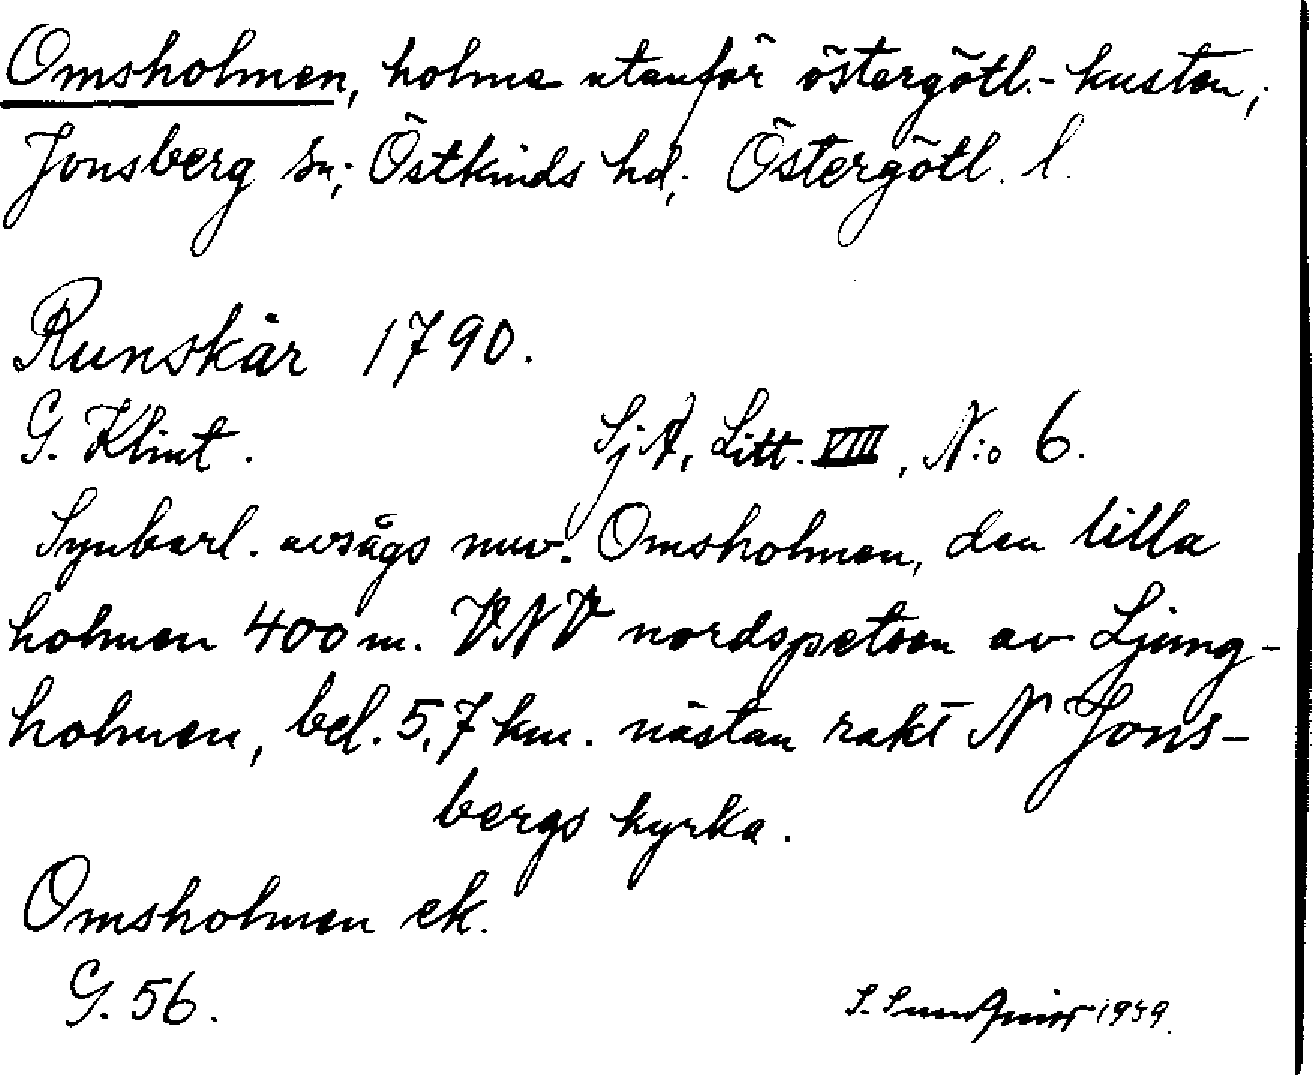 Omsholmen, holme utanför östergötl.-kusten,
Jonsberg sn, Östkinds hd, Östergötl. l.
Runskär 1790.
G. Klint. SjA, Litt. VIII, N:o 6.
Synbarl. avsågs nuv. Omsholmen, den lilla
holmen 400 m. VNV nordspetsen av Ljung-
holmen, bel. 5,7 km. nästan rakt N Jons-
bergs kyrka.
Omsholmen ek.
G. 56.
S. 1939.